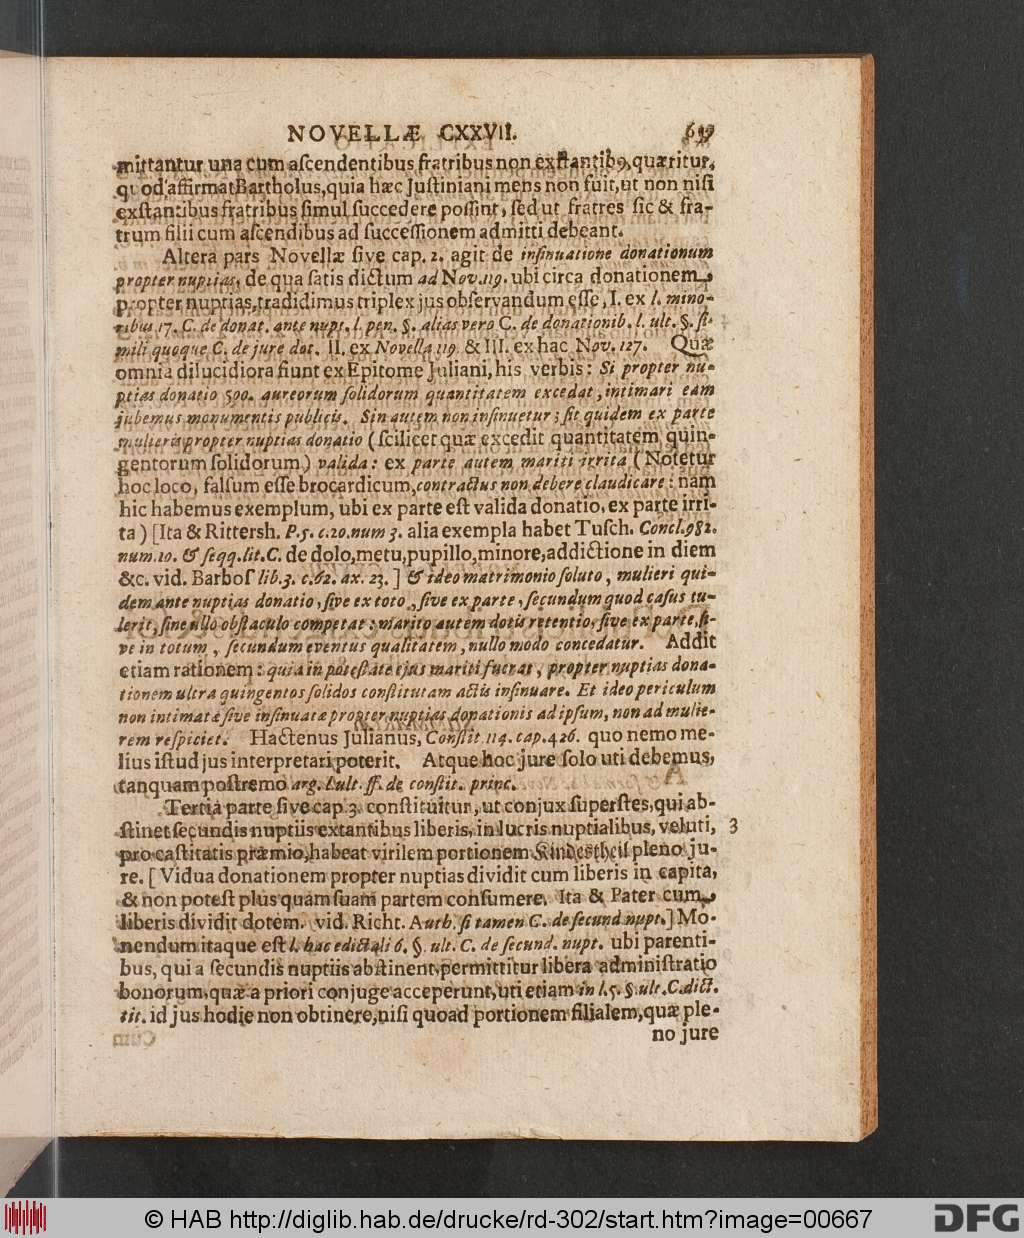 NOVELLÆ CXXVII.
mittantur una cum aſcendentibus fratribus non exſtantib9, quæritur,
quod affirmat Bartholus, quia hæc Juſtiniani mens non fuit, ut non niſi
exſtantibus fratribus ſimul ſuccedere poſſint, ſed ut fratres ſic & fra-
trum filii cum aſcendibus ad ſucceſſionem admitti debeant.
Altera pars Novellæ ſive cap. 2. agit de inſinuatione donationum
propter nuptias, de qua ſatis dictum ad Nov. 119. ubi circa donationem
propter nuptias, tradidimus triplex jus obſervandum eſſe, I. ex l. mino-
ribus 17. C. de donat. ante nupt. l. pen. §. alias vero C. de donationib. l. ult. §. ſi-
mili quoque C. de jure dot. II. ex Novella 119. & III. ex hac Nov. 127. Quæ
omnia dilucidiora fiunt ex Epitome Juliani, his verbis: Si propter nu-
ptias donatio 500. aureorum ſolidorum quantitatem excedat, intimari eam
jubemus monumentis publicis. Sin autem non inſinuetur; ſit quidem ex parte
mulieris propter nuptias donatio (ſcilicet quæ excedit quantitatem quin-
gentorum ſolidorum) valida: ex parte autem mariti irrita (Notetur
hoc loco, falſum eſſe brocardicum, contractus non debere claudicare: nam
hic habemus exemplum, ubi ex parte eſt valida donatio, ex parte irri-
ta) [Ita & Rittersh. P. 5. c. 20. num 3. alia exempla habet Tuſch. Concl. 982.
num. 10. & ſeqq. lit. C. de dolo, metu, pupillo, minore, addictione in diem
&c. vid. Barboſ lib. 3. c. 62. ax. 23.] & ideo matrimonio ſoluto, mulieri qui-
dem ante nuptias donatio, ſive ex toto, ſive ex parte, ſecundum quod caſus tu-
lerit, ſine ullo obſtaculo competat: marito autem dotis retentio, ſive ex parte, ſi-
ve in totum, ſecundum eventus qualitatem, nullo modo concedatur. Addit
etiam rationem: quia in poteſtate ejus mariti fuerat, propter nuptias dona-
tionem ultra quingentos ſolidos conſtitutam actis inſinuare. Et ideo periculum
non intimatæ ſive inſinuatæ propter nuptias donationis ad ipſum, non ad mulie-
rem reſpiciet. Hactenus Julianus, Conſtit. 114. cap. 426. quo nemo me-
lius iſtud jus interpretari poterit. Atque hoc jure ſolo uti debemus,
tanquam poſtremo arg. l. ult. ff. de conſtit. princ.
Tertia parte ſive cap. 3. conſtituitur, ut conjux ſuperſtes, qui ab-
ſtinet ſecundis nuptiis extantibus liberis, in lucris nuptialibus, veluti, 3
pro caſtitatis præmio, habeat virilem portionem Kindestheil pleno ju-
re. [Vidua donationem propter nuptias dividit cum liberis in capita,
& non poteſt plus quam ſuam partem conſumere. Ita & Pater cum
liberis dividit dotem. vid. Richt. Auth. ſi tamen C. de ſecund nupt.] Mo-
nendum itaque eſt l. hac edictali 6. §. ult. C. de ſecund. nupt. ubi parenti-
bus, qui a ſecundis nuptiis abſtinent, permittitur libera adminiſtratio
bonorum, quæ a priori conjuge acceperunt, uti etiam in l. 5. §. ult. C. dict.
tit. id jus hodie non obtinere, niſi quoad portionem filialem, quæ ple-
no jure
© HAB http://diglib.hab.de/drucke/rd-302/start.htm?image=00667
DFG